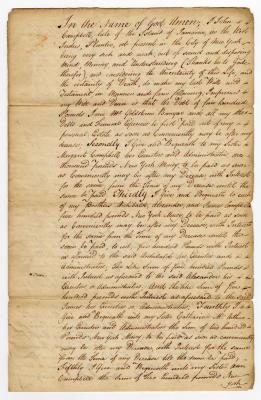 In the Name of God Amen, I John
Campbell, late of the Island of Jamaica, in the West
Indies, Planter, at present in the City of New York
being very sick and weak, but of sound and disposing
Mind, Memory and Understanding (Thanks be to God
therefor) and considering the Uncertainty of this life, and
the certainty of Death, do make my last Will and
Testament in Manner and form following, Imprimis
my Will and Desire is that the Debt of four hundred
Pounds I owe Mr Goldsbrow Banyar and all my other
Debts and Funeral Expences be first paid out of my
personal Estate as soon as Conveniently may be after my
decease, Secondly I Give and Bequeath to my Sister
Margaret Campbell her Executors and Administrators one
thousand Pounds New York Money, to be paid as soon as
Conveniently may be after my Decease with Interest
for the same from the time of my Decease until the
same be paid, Thirdly I Give and Bequeath to each
of my Brothers Archibald, Alexander, and James Campbell
five hundred pounds New York Money, to be paid as soon
as Conveniently may be after my Decease with Interest
for the same from the time of my Decease until the
same be paid, to wit, five hundred Pounds with Interest
as aforesaid to the said Archibald his Executors and
Administrators, the like Sum of five hundred Pounds
with Interest as aforesaid to the said Alexander his
Executors or Administrators, And the like Sum of five
hundred pounds with Interest as aforesaid to the said
James his Executors or Administrators, Fourthly I
Give and Bequeath unto my Sister Catharine
her Executors and Administrators the Sum of five hundred
Pounds New York Money, to be paid as soon as Conveniently
may be after my Decease with Interest for the same
from the time of my Decease till the same be paid,
Fifthly I Give and Bequeath unto my Sister Ann
Campbell the Sum of five hundred pounds New
York